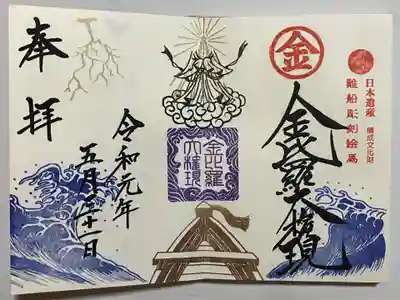 金
日本遺産
構成文化財
難船彫刻絵馬
金比羅大権現
金比羅
大権現
奉拝
令和元年
五月二十一日